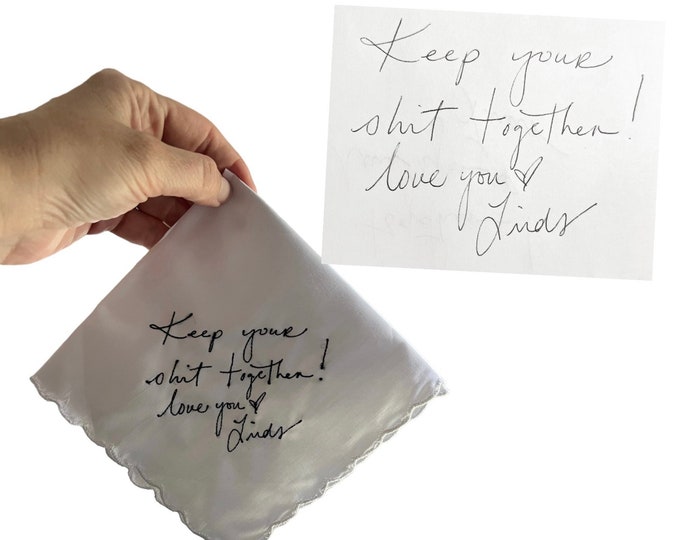 Keep your
shit together!
love you ♡
Linds
Keep your
shit together!
love you ♡
Linds